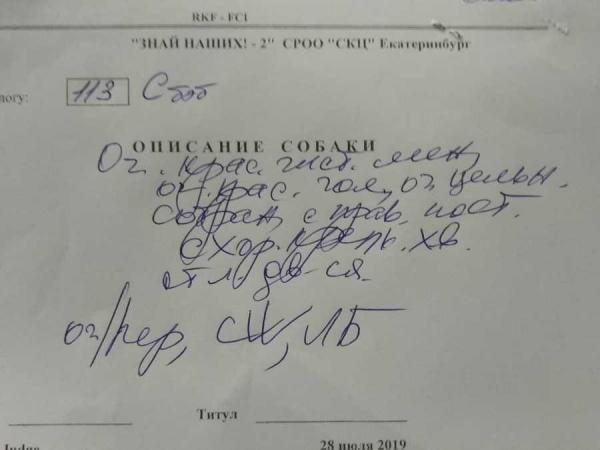 RKF - FCI
"ЗНАЙ НАШИХ! - 2" СРОО "СКЦ" Екатеринбург
логу: 113
ОПИСАНИЕ СОБАКИ
Оч. крас.
оч. крас. гол, оч. цельн.
с прав. пост.
хор. хв.
отл. дв-ся.
оч/пер, CW, ЛБ
Титул
Judge
28 июля 2019